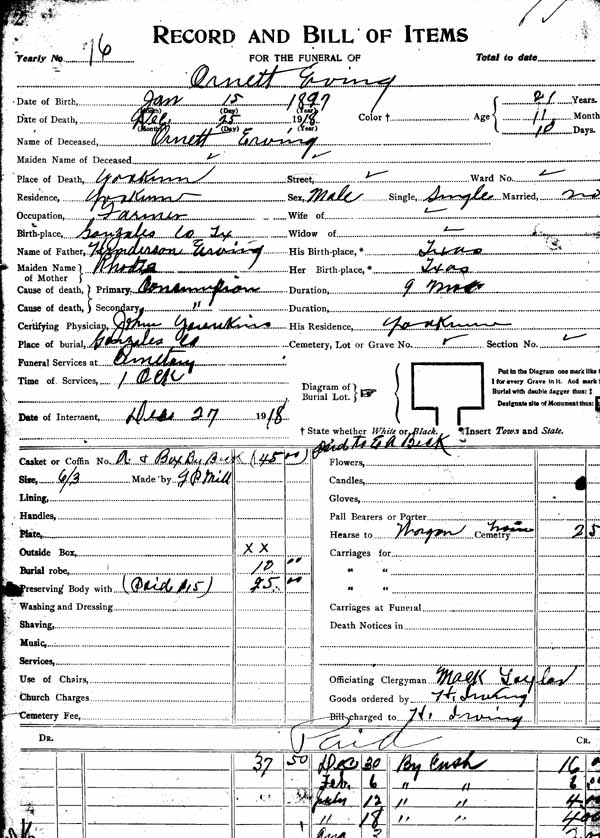 RECORD AND BILL OF ITEMS
Yearly No 76 FOR THE FUNERAL OF Total to date
Ornett Erving
Date of Birth, Jan 15 1897 21 Years.
(Month) (Day) (Year)
Date of Death, Dec 25 1918 Color † Age 11 Month
(Month) (Day) (Year) 10 Days.
Name of Deceased, Ornett Erving
Maiden Name of Deceased ✓ ✓
Place of Death, Yoakum Street, ✓ Ward No. ✓
Residence, Yoakum Sex, Male Single, Single Married, no
Occupation, Farmer Wife of ✓
Birth-place, Gonzales Co Tx Widow of ✓
Name of Father, Henderson Erving His Birth-place,* Texas
Maiden Name of Mother Her Birth-place,* Texas
Cause of death, Primary, Consumption Duration, 9 Mos
Cause of death, Secondary, " Duration,
Certifying Physician, His Residence, Yoakum
Place of burial, Gonzales Co Cemetery, Lot or Grave No. ✓ Section No. ✓
Funeral Services at Cemetery
Time of Services, 1 Oclk
Diagram of Burial Lot.
Put in the Diagram one mark like t
I for every Grave in it. And mark
Burial with double dagger thus: ‡
Designate site of Monument thus:
Date of Interment, Dec 27 1918
† State whether White or Black. *Insert Town and State.
Paid to E A Beck
Casket or Coffin No. & Box By Beck (45 00) Flowers,
Size, 6/3 Made by G P Mill Candles,
Lining, Gloves,
Handles, Pall Bearers or Porter
Plate, Hearse to Cemetry 25
Outside Box, X X Carriages for
Burial robe, 10 00 " "
Preserving Body with (Paid 25 00 " "
Washing and Dressing Carriages at Funeral
Shaving, Death Notices in
Music,
Services,
Use of Chairs, Officiating Clergyman Mack Taylor
Church Charges Goods ordered by H. Irving
Cemetery Fee, Bill charged to H. Irving
DR. Paid CR.
37 50 Dec 30 By Cash 16
Feb. 6 " "
July 12 " " 4 00
" 18 " " 4 00